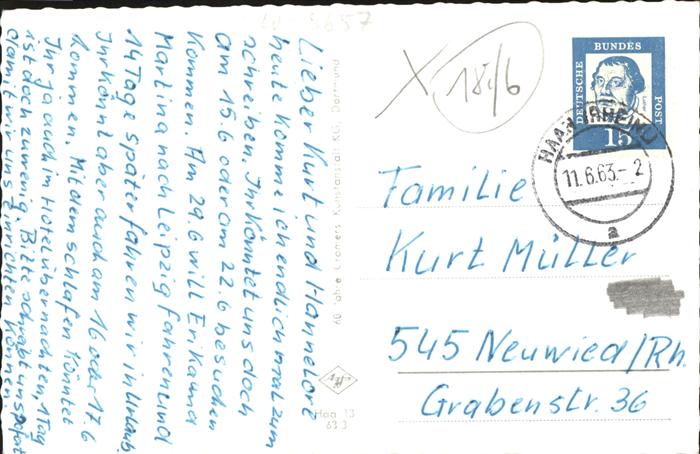 Lieber Kurt und Hannelore
heute komme ich endlich mal zum
schreiben. Ihr könntet uns doch
am 15.6 oder am 22.6 besuchen
kommen. Am 29.6 will Erika und
Martina nach Leipzig fahren und
14 Tage später fahren wir in Urlaub.
Ihr könnt aber auch am 16 oder 17.6
kommen. Mit dem schlafen könntet
Ihr ja auch im Hotel übernachten, 1 Tag
ist doch zu wenig. Bitte schreibt uns sofort
damit wir uns einrichten können
60 Jahre Cramers Kunstanstalt KG. Dortmund
Haa 13
63 3
185/6
DEUTSCHE
BUNDES
POST
Luther
15
HAAN (RHEINL)
11.6.63-2
a
Familie
Kurt Müller
545 Neuwied/Rh.
Grabenstr. 36